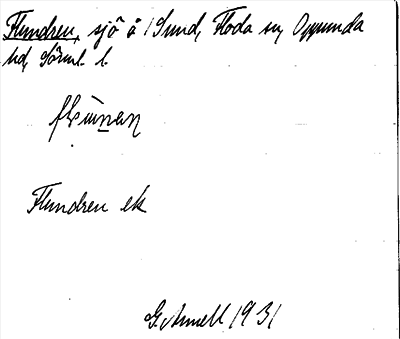 Flundren, sjö å / Sund, Floda sn, Oppunda
hd, Sörml. l.
Flundren ek
G. Annell 1931